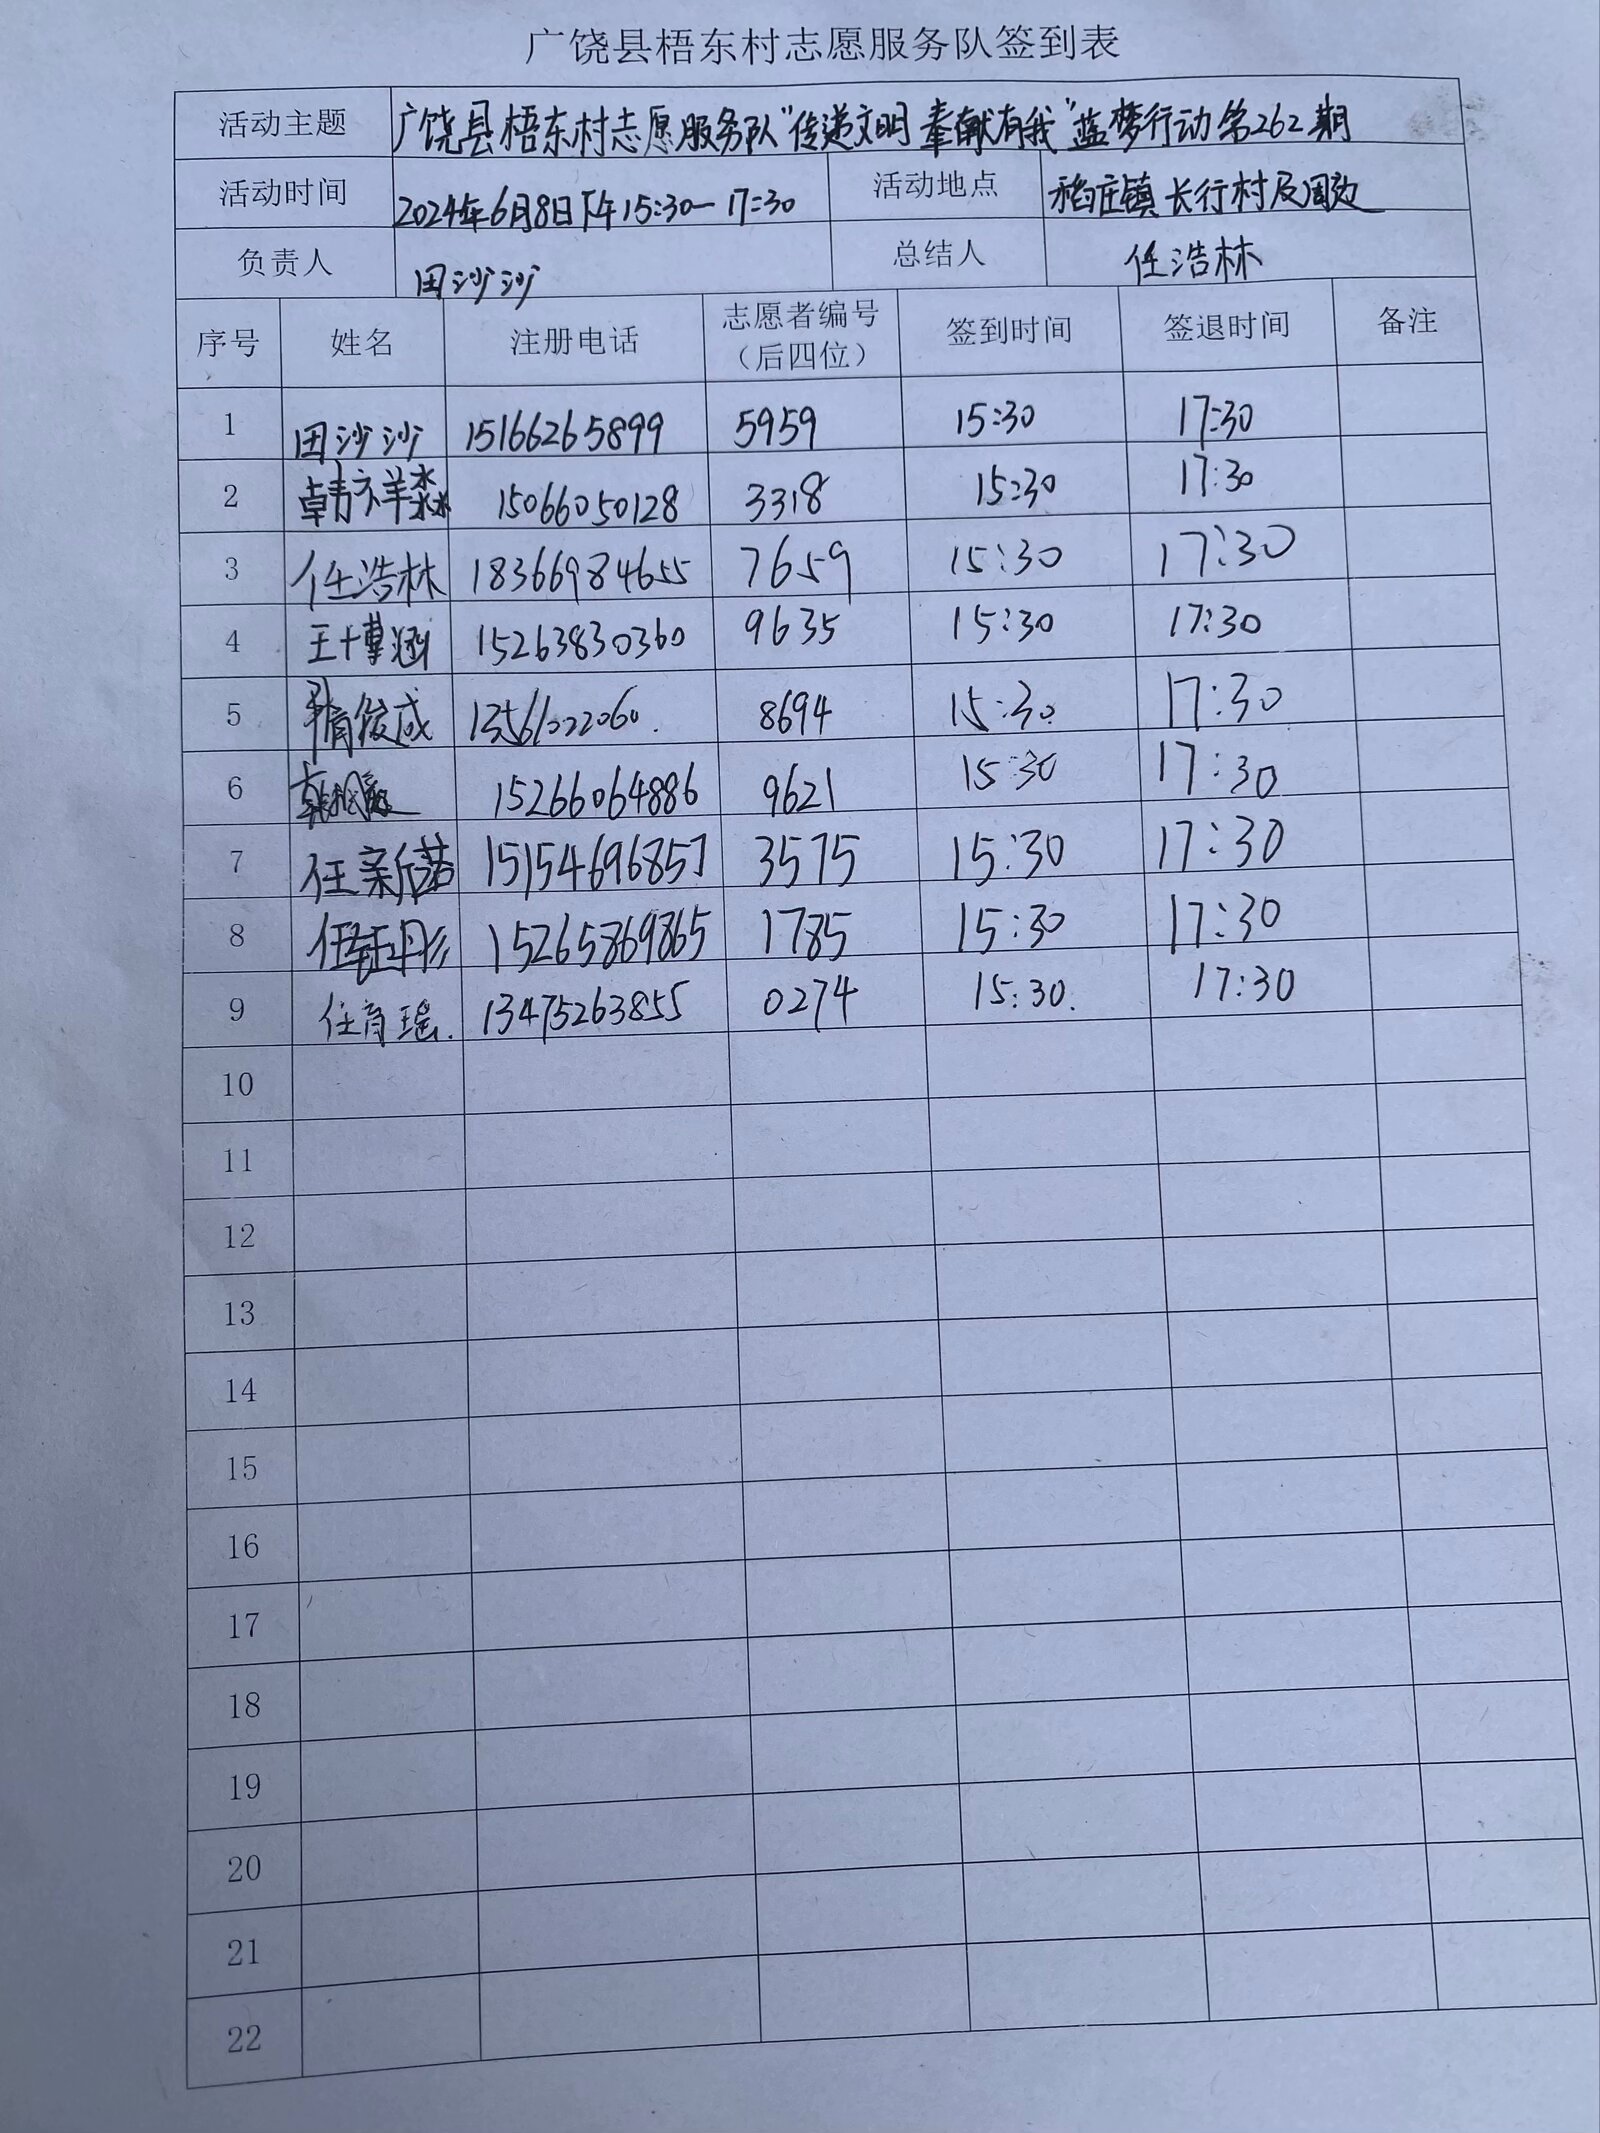 广饶县梧东村志愿服务队签到表
活动主题 广饶县梧东村志愿服务队“传递文明 奉献有我”蓝梦行动第262期
活动时间 2024年6月8日下午15:30-17:30 活动地点 稻庄镇长行村及周边
负责人 田沙沙 总结人 任浩林
序号 姓名 注册电话 志愿者编号（后四位） 签到时间 签退时间 备注
1 田沙沙 15166265899 5959 15:30 17:30
2 韩祥淼 15066050128 3318 15:30 17:30
3 任浩林 18366984655 7659 15:30 17:30
4 王博涵 15263830360 9635 15:30 17:30
5 隋俊成 13561022060 8694 15:30 17:30
6 15266064886 9621 15:30 17:30
7 任新茹 15154696857 3575 15:30 17:30
8 任钰彤 15265869865 1785 15:30 17:30
9 任育瑶 13475263855 0274 15:30 17:30
10
11
12
13
14
15
16
17
18
19
20
21
22